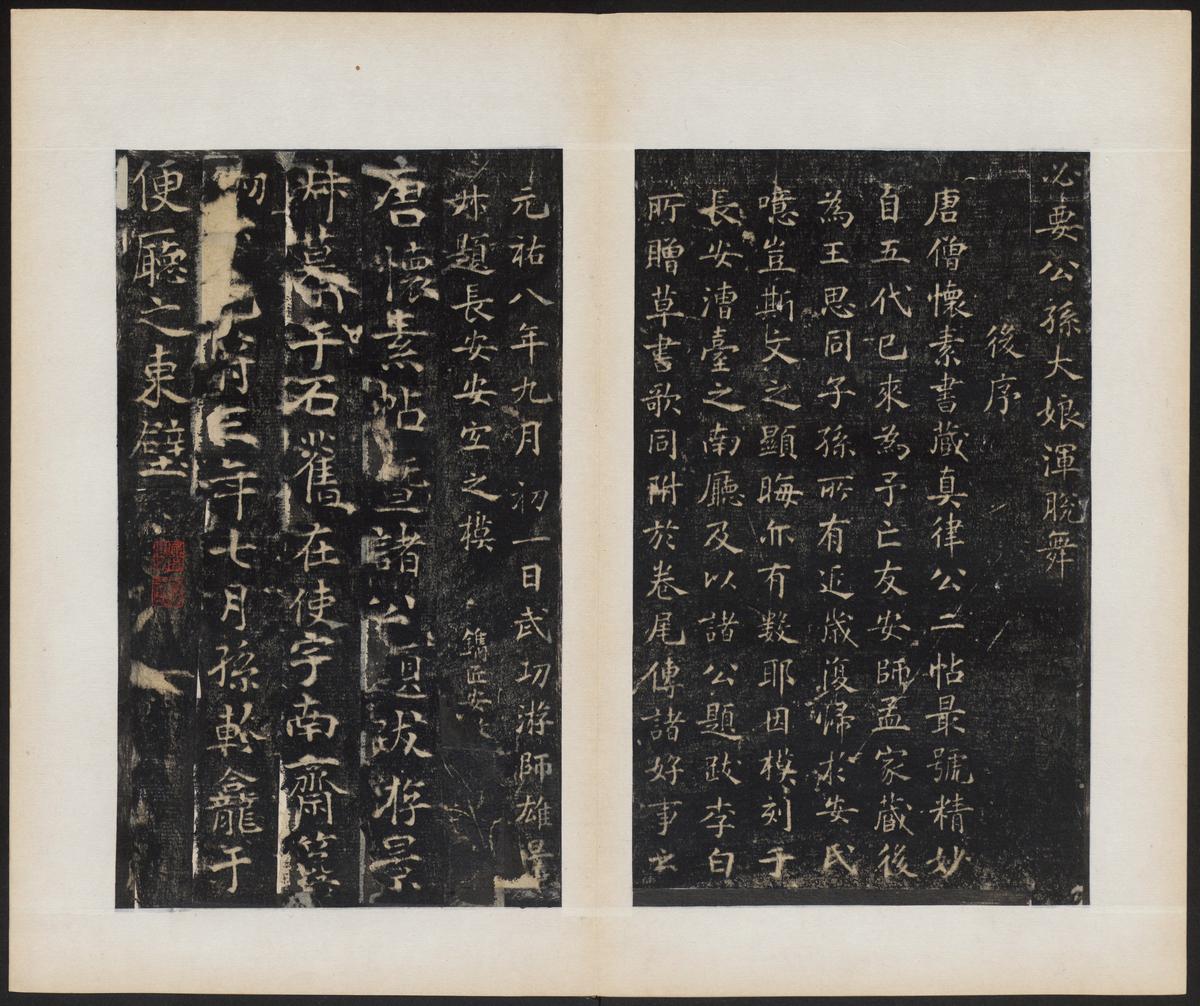 必要公孫大娘渾脫舞
後序
唐僧懷素書藏真律公二帖最號精妙
自五代已來為予亡友安師孟家藏後
為王思同子孫所有近歲復歸於安氏
噫豈斯文之顯晦亦有数耶因模刻于
長安漕臺之南廳及以諸公題跋李白
所贈草書歌同附於卷尾傳諸好事云
元祐八年九月初一日武功游師雄景
叔題長安安宜之模
鐫匠安
唐懷素帖暨諸公題跋游景
叔摹于石舊在使宇南齋
符三年七月孫軫龕于
便廳之東壁